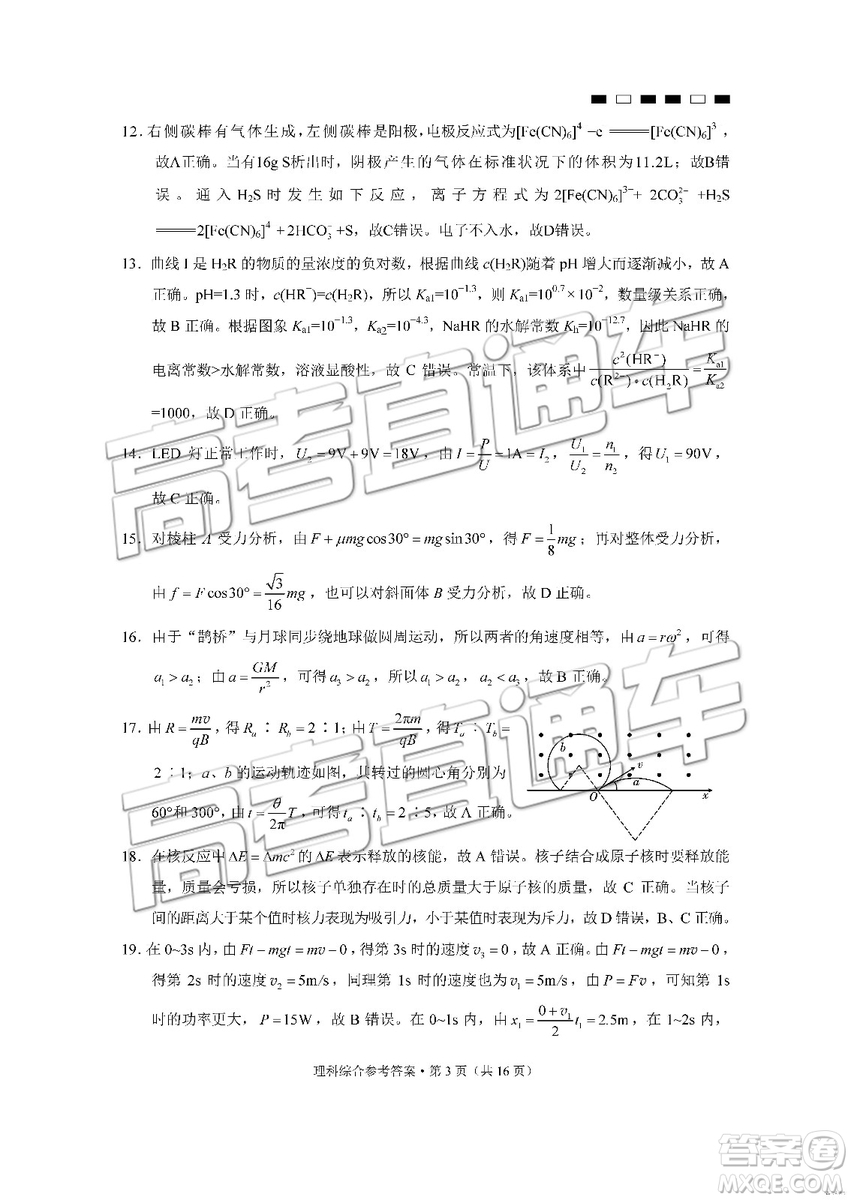 12．右侧碳棒有气体生成，左侧碳棒是阳极，电极反应式为[Fe(CN)₆]⁴ −e ═══[Fe(CN)₆]³ ，
故A正确。当有16g S析出时，阴极产生的气体在标准状况下的体积为11.2L；故B错
误。通入 H₂S 时发生如下反应，离子方程式为 2[Fe(CN)₆]³⁻+ 2CO₃²⁻ +H₂S
═══2[Fe(CN)₆]⁴ +2HCO₃⁻+S，故C错误。电子不入水，故D错误。
13．曲线 I 是 H₂R 的物质的量浓度的负对数，根据曲线 c(H₂R)随着 pH 增大而逐渐减小，故 A
正确。pH=1.3 时，c(HR⁻)=c(H₂R)，所以 Ka1=10⁻¹·³，则 Ka1=10⁰·⁷×10⁻²，数量级关系正确，
故 B 正确。根据图象 Ka1=10⁻¹·³，Ka2=10⁻⁴·³，NaHR 的水解常数 Kh=10⁻¹²·⁷，因此 NaHR 的
电离常数>水解常数，溶液显酸性，故 C 错误。常温下，该体系中 c²(HR⁻)/c(R²⁻)•c(H₂R) = Ka1/Ka2
=1000，故 D 正确。
14．LED 灯正常工作时，U₂=9V+9V=18V，由 I=P/U=1A=I₂，U₁/U₂=n₁/n₂，得 U₁=90V，
故 C 正确。
15．对棱柱 A 受力分析，由 F+μmgcos30°=mgsin30°，得 F=1/8 mg；再对整体受力分析，
由 f=Fcos30°=√3/16 mg，也可以对斜面体 B 受力分析，故 D 正确。
16．由于“鹊桥”与月球同步绕地球做圆周运动，所以两者的角速度相等，由 a=rω²，可得
a₁>a₂；由 a=GM/r²，可得 a₃>a₂，所以 a₁>a₂，a₂<a₃，故 B 正确。
17．由 R=mv/qB，得 Ra∶Rb=2∶1；由 T=2πm/qB，得 Ta∶Tb=
2∶1；a、b 的运动轨迹如图，其转过的圆心角分别为
60°和 300°，由 t=θ/2π T，可得 ta∶tb=2∶5，故 A 正确。
b
v
a
O
x
18．在核反应中 ΔE=Δmc² 的 ΔE 表示释放的核能，故 A 错误。核子结合成原子核时要释放能
量，质量会亏损，所以核子单独存在时的总质量大于原子核的质量，故 C 正确。当核子
间的距离大于某个值时核力表现为吸引力，小于某值时为斥力，故 D 错误，B、C 正确。
19．在 0~3s 内，由 Ft−mgt=mv−0，得第 3s 时的速度 v₃=0，故 A 正确。由 Ft−mgt=mv−0，
得第 2s 时的速度 v₂=5m/s，同理第 1s 时的速度也为 v₁=5m/s，由 P=Fv，可知第 1s
时的功率更大，P=15W，故 B 错误。在 0~1s 内，由 x₁=(0+v₁)/2 t₁=2.5m，在 1~2s 内，
理科综合参考答案·第 3 页（共 16 页）
高考直通车
高考直通车
高考直通车
答案圈
MXQE.COM